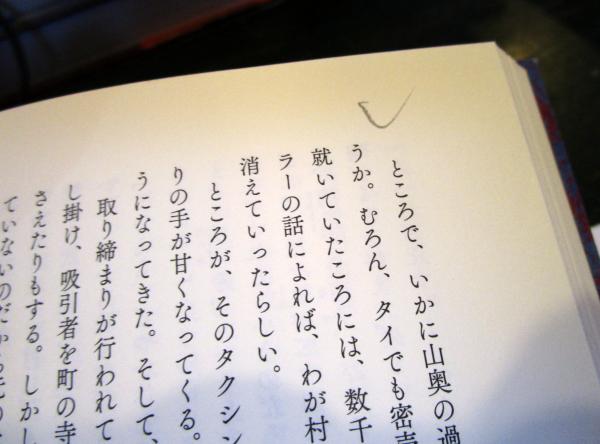 ところで、いかに山奥の過
うか。むろん、タイでも密売
就いていたころには、数千
ラーの話によれば、わが村
消えていったらしい。
ところが、そのタクシン
りの手が甘くなってくる。
うになってきた。そして、
取り締まりが行われて
し掛け、吸引者を町の寺
さえたりもする。しかし
ていないのだから